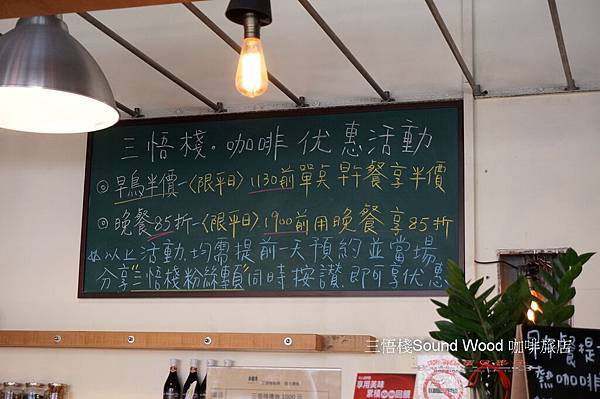 三悟棧。咖啡优惠活動
◎早鳥半價-〈限平日〉1130前單点早午餐享半價
◎晚餐85折-〈限平日〉1900前用晚餐享85折
※以上活動,均需提前一天預約並當場
分享"三悟棧粉絲頁"同時按讚,即可享优惠
三悟棧Sound Wood 咖啡旅店
享用美味